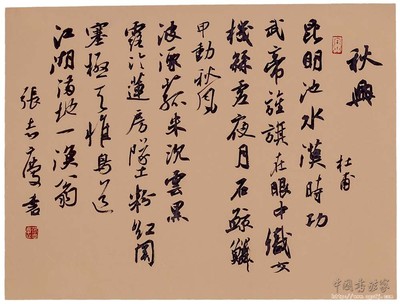 秋興
杜甫
昆明池水漢時功
武帝旌旗在眼中織女
機絲虛夜月石鯨鱗
甲動秋風
波漂菰米沉雲黑
露冷蓮房墜粉紅關
塞極天惟鳥道
江湖滿地一漁翁
張志慶書